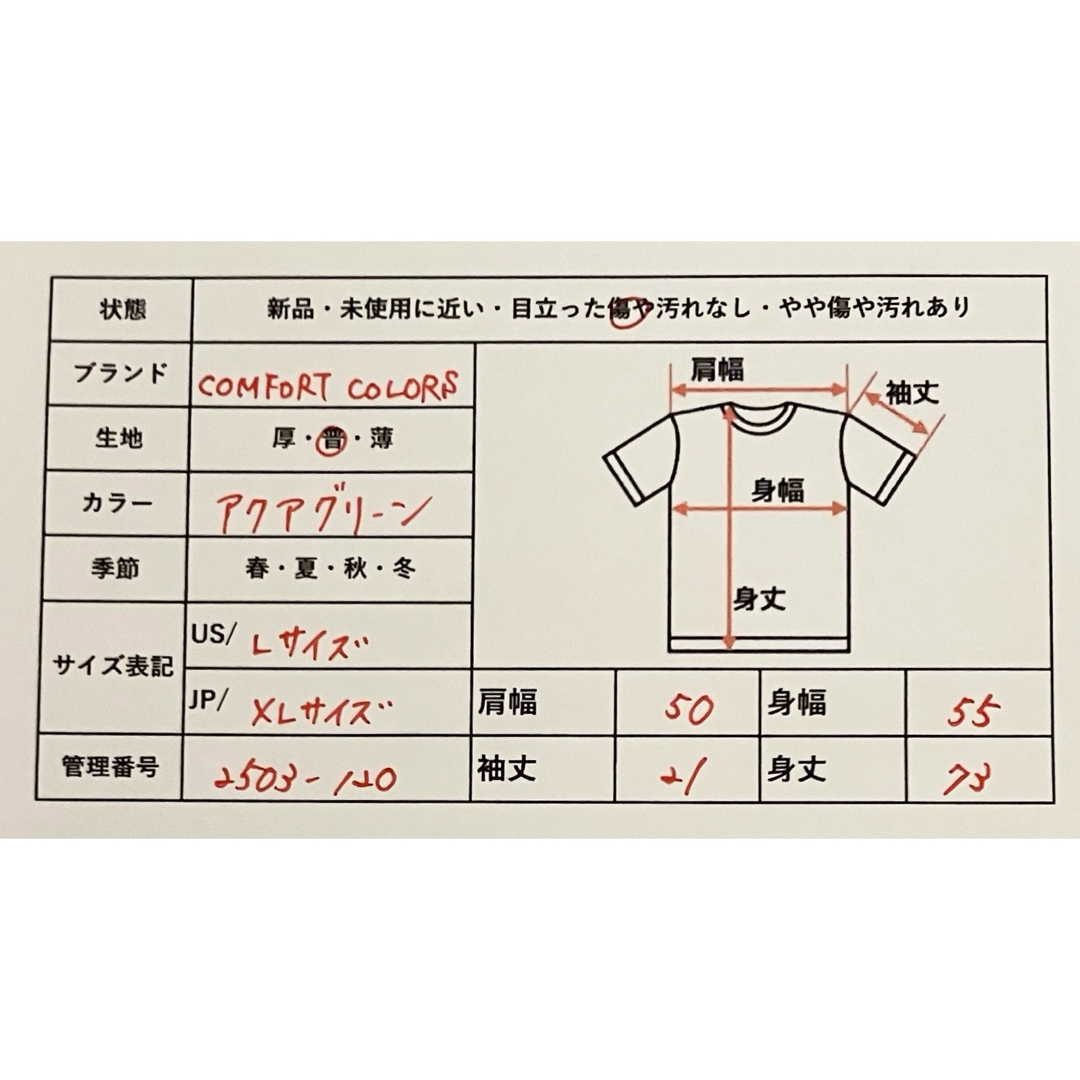 状態 新品・未使用に近い・目立った傷や汚れなし・やや傷や汚れあり
ブランド COMFORT COLORS
生地 厚・普・薄
カラー アクアグリーン
季節 春・夏・秋・冬
サイズ表記 US/ Lサイズ
JP/ XLサイズ
管理番号 2503-120
肩幅
袖丈
身幅
身丈
肩幅 50 身幅 55
袖丈 21 身丈 73